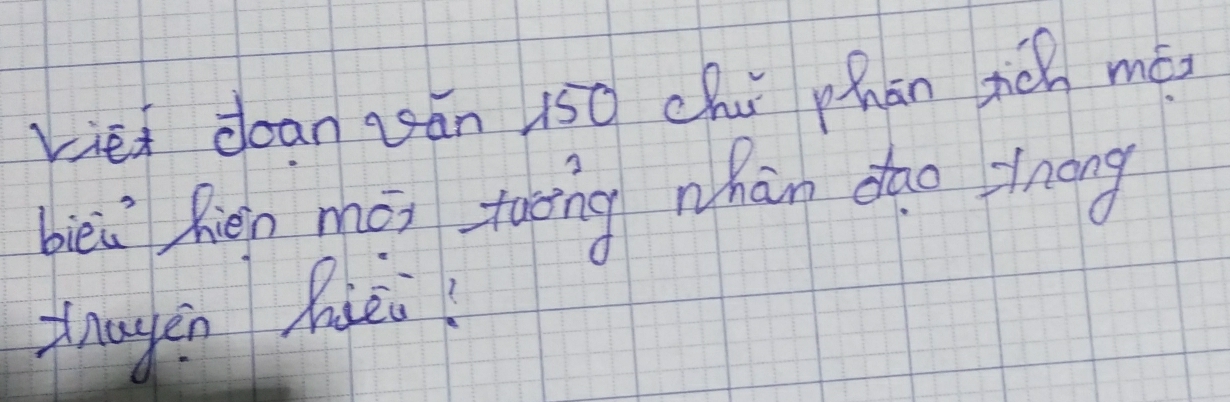 Viết đoạn văn 150 chữ phân tích một
biểu hiện một tưởng nhân đạo trong
truyện kiều!